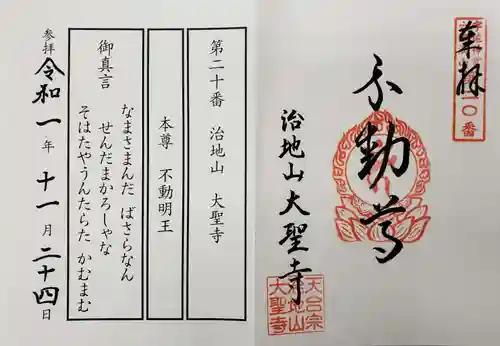 奉拝
〇番
不動尊
治地山大聖寺
天台宗
治地山
大聖寺
第二十番 治地山 大聖寺
本尊 不動明王
御真言
なまさまんだ ばさらなん
せんだまかろしゃな
そはたやうんたらた かむまむ
参拝 令和一年十一月二十四日